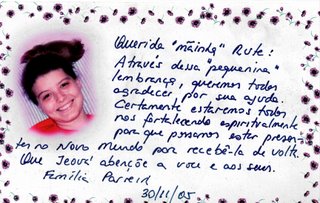 Querida "mãinha" Rute:
Através dessa "pequenina"
lembrança, queremos todos
agradecer por sua ajuda.
Certamente estaremos todos
nos fortalecendo espiritualmente
para que possamos estar presen-
tes no Novo Mundo por recebê-la de volta.
Que Jeová abençõe a você e aos seus.
Família
30/11/05